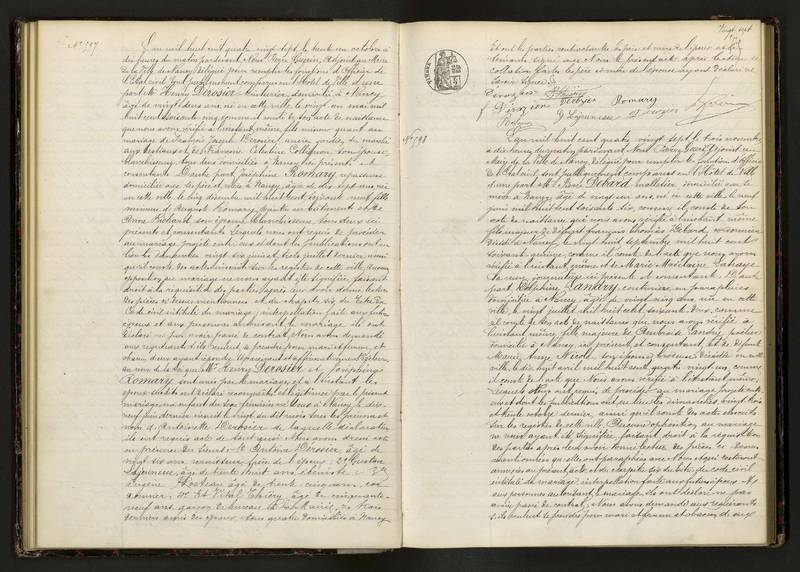 N° 597
L'an mil huit cent quatre vingt sept, le trente un octobre à
dix heures du matin par devant Nous
de la Ville de Nancy, délégué pour remplir les fonctions d'Officier de
l'État civil, sont publiquement comparus en l'Hôtel de Ville d'une
part M. Henry Derosier ceinturier, domicilié à Nancy
âgé de vingt deux ans, né en cette ville le vingt un mai mil
huit cent soixante cinq, comme il conste de son acte de naissance
que nous avons vérifié à l'instant même, fils mineur quant au
mariage de François Joseph Derosier, ancien
aux tertiaux et de Françoise Célestine Collignon, son épouse
blanchisseuse, tous deux domiciliés à Nancy, ici présents et
consentants. D'autre part Joséphine Romary repasseuse
domiciliée avec ses père et mère à Nancy, âgée de dix sept ans, née
en cette ville le cinq décembre mil huit cent soixante neuf, fille
mineure d'August Romary, peintre en bâtiment et de
Anne Richard son épouse blanchisseuse, tous deux ici
présents et consentants. Lesquels nous ont requis de procéder
au mariage projeté entre eux et dont les publications ont eu
lieu les dimanches vingt six juin et trois juillet dernier, ainsi
qu'il conste des actes inscrits sur les registres de cette ville. Aucune
opposition au mariage ne nous ayant été signifiée, faisant
droit à la réquisition des parties, après leur avoir donné lecture
des pièces ci dessus mentionnées et du chapitre six du titre du
Code civil intitulé du mariage, interpellation faite aux futurs
époux et aux personnes autorisant le mariage, ils ont
déclaré ne pas avoir passé de contrat. Nous avons demandé
aux requérants s'ils veulent se prendre pour mari et femme, et
chacun d'eux ayant répondu séparément et affirmativement, déclarons
au nom de la loi que M. Henry Derosier et Joséphine
Romary sont unis par le mariage, et à l'instant les
époux susdits ont déclaré reconnaître et légitimer par le présent
mariage un enfant du sexe féminin né d'eux à Nancy le dix
neuf juin dernier inscrit le vingt du dit mois sous les prénoms et
nom d'Antoinette Derosier de laquelle déclaration
ils ont requis acte de tout quoi Nous avons dressé acte
en présence des sieurs: 1° Antoine Derosier, âgé de
vingt six ans, vannier frère de l'époux 2° Gustave
Lejeunesse, âgé de trente huit ans, 3°
Eugène Hosteau âgé de trente cinq ans, cor
donnier, 4° Vital Thiéry, âgé de cinquante
neuf ans, garçon de bureau
derniers amis des époux, tous quatre domiciliés à Nancy
Vingt sept
Et ont les parties contractantes, les père et mère de l'époux et les
témoins signé avec Nous le présent acte après lecture et
collation faites, les père et mère de l'épouse ayant déclaré ne
savoir signer.
Derozier Thiéry
f Dérozier Derozier Romary
Lejeunesse Derozier
N° 598
L'an mil huit cent quatre vingt sept, le trois novembre
à dix heures du matin, par devant Nous
Maire de la Ville de Nancy, délégué pour remplir les fonctions d'Officier
de l'État civil, sont publiquement comparus en l'Hôtel de Ville
d'une part M. Pierre Debard, malletier, domicilié avec sa
mère à Nancy, âgé de vingt un ans, né en cette ville le neuf
juin mil huit cent soixante six, comme il conste de son
acte de naissance que nous avons vérifié à l'instant même
fils majeur de défunt François Thomas Debard, cordonnier
décédé à Nancy, le vingt huit septembre mil huit cent
soixante quinze comme il conste de l'acte que nous avons
vérifié à l'instant même et de Marie Madelaine
sa veuve, journalière, ici présente et consentante. D'autre
part Delphine Landry, couturière en parapluies
domiciliée à Nancy, âgée de vingt cinq ans, née en cette
ville, le vingt juillet mil huit cent soixante deux, comme
il conste de son acte de naissance que nous avons vérifié à
l'instant même, fille majeure de Ambroise Landry
domicilié à Nancy, ici présent et consentant et de défunte
Marie Anne Nicole, son épouse, décédée en cette
ville, le dix huit avril mil huit cent quatre vingt un, comme
il conste de l'acte que nous avons vérifié à l'instant même,
lesquels nous ont requis de procéder au mariage projeté entre
eux et dont les publications ont eu lieu les dimanches vingt trois
et trente octobre dernier, ainsi qu'il conste des actes inscrits
sur les registres de cette ville. Aucune opposition au mariage
ne nous ayant été signifiée, faisant droit à la réquisition
des parties, après leur avoir donné lecture des pièces ci dessus
mentionnées qui seront paraphées avec Nous et qui resteront
annexées au présent acte, et du chapitre six du titre du code civil
intitulé du mariage, interpellation faite aux futurs époux et
aux personnes autorisant le mariage, ils ont déclaré ne pas
avoir passé de contrat. Nous avons demandé aux requérants
s'ils veulent se prendre pour mari et femme et chacun d'eux